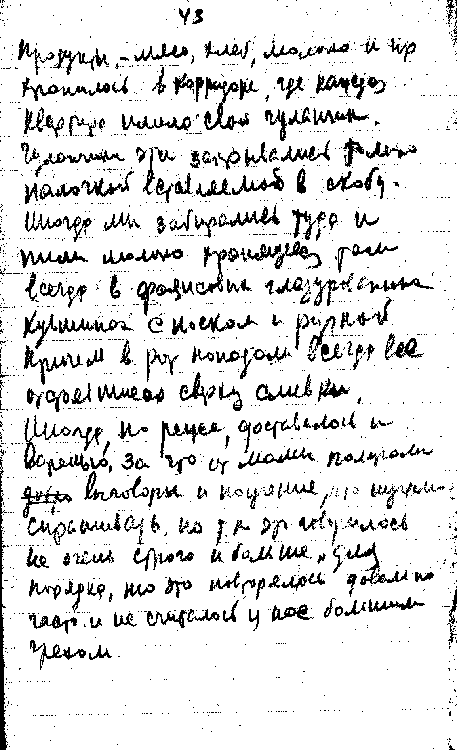 43
Продукты, – мясо, хлеб, молоко и пр
хранилось в корридоре, где каждая
квартира имела свой чуланчик.
Чуланчики эти закрывались только
палочкой вставляемой в скобу.
Иногда мы забирались туда и
пили молоко хранящееся там
всегда в фаянсовых глазурованных
кувшинах с носком и ручкой
Причем в рот попадали всегда все
отстоявшиеся сверху сливки,
Иногда, но реже, доставалось и
варенью, за что от мамы получали
выговоры и поучение, что нужно
спрашивать, но т.к это говорилось
не очень строго и больше „для
порядка, то это повторялось довольно
часто и не считалось у нас большим
грехом.